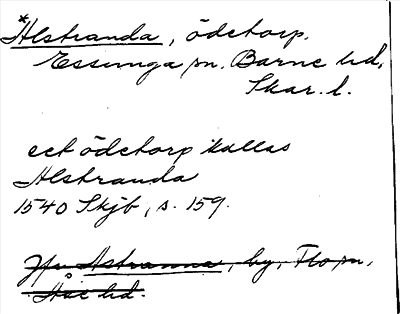 *Alstranda, ödetorp.
Essunga sn. Barne hd,
Skar. l.
ect ödetorp kallas
Alstranda
1540 Skjb, s. 159.
Jfr Astranna, by, Flo sn,
Åse hd.